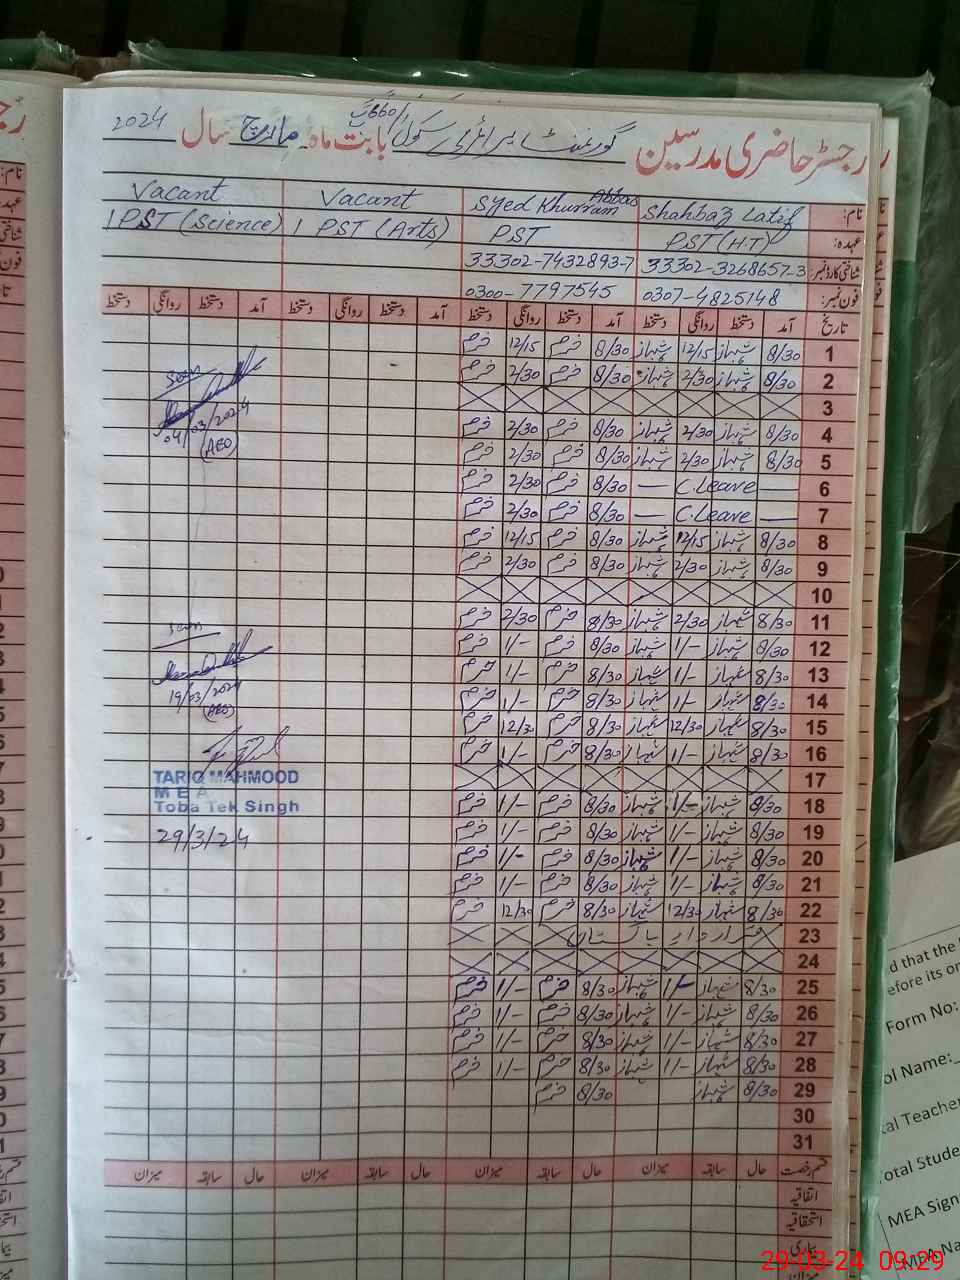 رجسٹر حاضری مدرسین گورنمنٹ پرائمری سکول 660/گ ب بابت ماہ مارچ سال 2024
نام: Shahbaz Latif Syed Khurram Abbas Vacant Vacant
عہدہ: PST (H.T) PST 1 PST (Arts) 1 PST (Science)
شناختی کارڈ نمبر: 33302-3268657-3 33302-7432893-7
فون نمبر: 0307-4825148 0300-7797545
تاریخ آمد دستخط روانگی دستخط آمد دستخط روانگی دستخط آمد دستخط روانگی دستخط آمد دستخط روانگی دستخط
1 8/30 شہباز 12/15 شہباز 8/30 خرم 12/15 خرم
2 8/30 شہباز 2/30 شہباز 8/30 خرم 2/30 خرم
3
4 8/30 شہباز 2/30 شہباز 8/30 خرم 2/30 خرم
5 8/30 شہباز 2/30 شہباز 8/30 خرم 2/30 خرم
6 — C.Leave — 8/30 خرم 2/30 خرم
7 — C.Leave — 8/30 خرم 2/30 خرم
8 8/30 شہباز 12/15 شہباز 8/30 خرم 12/15 خرم
9 8/30 شہباز 2/30 شہباز 8/30 خرم 2/30 خرم
10
11 8/30 شہباز 2/30 شہباز 8/30 خرم 2/30 خرم
12 8/30 شہباز 1/- شہباز 8/30 خرم 1/- خرم
13 8/30 شہباز 1/- شہباز 8/30 خرم 1/- خرم
14 8/30 شہباز 1/- شہباز 8/30 خرم 1/- خرم
15 8/30 شہباز 12/30 شہباز 8/30 خرم 12/30 خرم
16 8/30 شہباز 1/- شہباز 8/30 خرم 1/- خرم
17
18 8/30 شہباز 1/- شہباز 8/30 خرم 1/- خرم
19 8/30 شہباز 1/- شہباز 8/30 خرم 1/- خرم
20 8/30 شہباز 1/- شہباز 8/30 خرم 1/- خرم
21 8/30 شہباز 1/- شہباز 8/30 خرم 1/- خرم
22 8/30 شہباز 12/30 شہباز 8/30 خرم 12/30 خرم
23 قرارداد پاکستان
24
25 8/30 شہباز 1/- شہباز 8/30 خرم 1/- خرم
26 8/30 شہباز 1/- شہباز 8/30 خرم 1/- خرم
27 8/30 شہباز 1/- شہباز 8/30 خرم 1/- خرم
28 8/30 شہباز 1/- شہباز 8/30 خرم 1/- خرم
29 8/30 شہباز 8/30 خرم
30
31
قسم رخصت حال سابقہ میزان حال سابقہ میزان حال سابقہ میزان حال سابقہ میزان
اتفاقیہ
استحقاقیہ
بیماری
میزان
Seen
04/03/2024
(AEO)
Seen
19/03/2024
(AEO)
TARIQ MAHMOOD
MEA
Toba Tek Singh
29/3/24
d that the
efore its or
Form No:
ol Name:
tal Teacher
otal Stude
MEA Sign
MEA Na
29-03-24 09:29